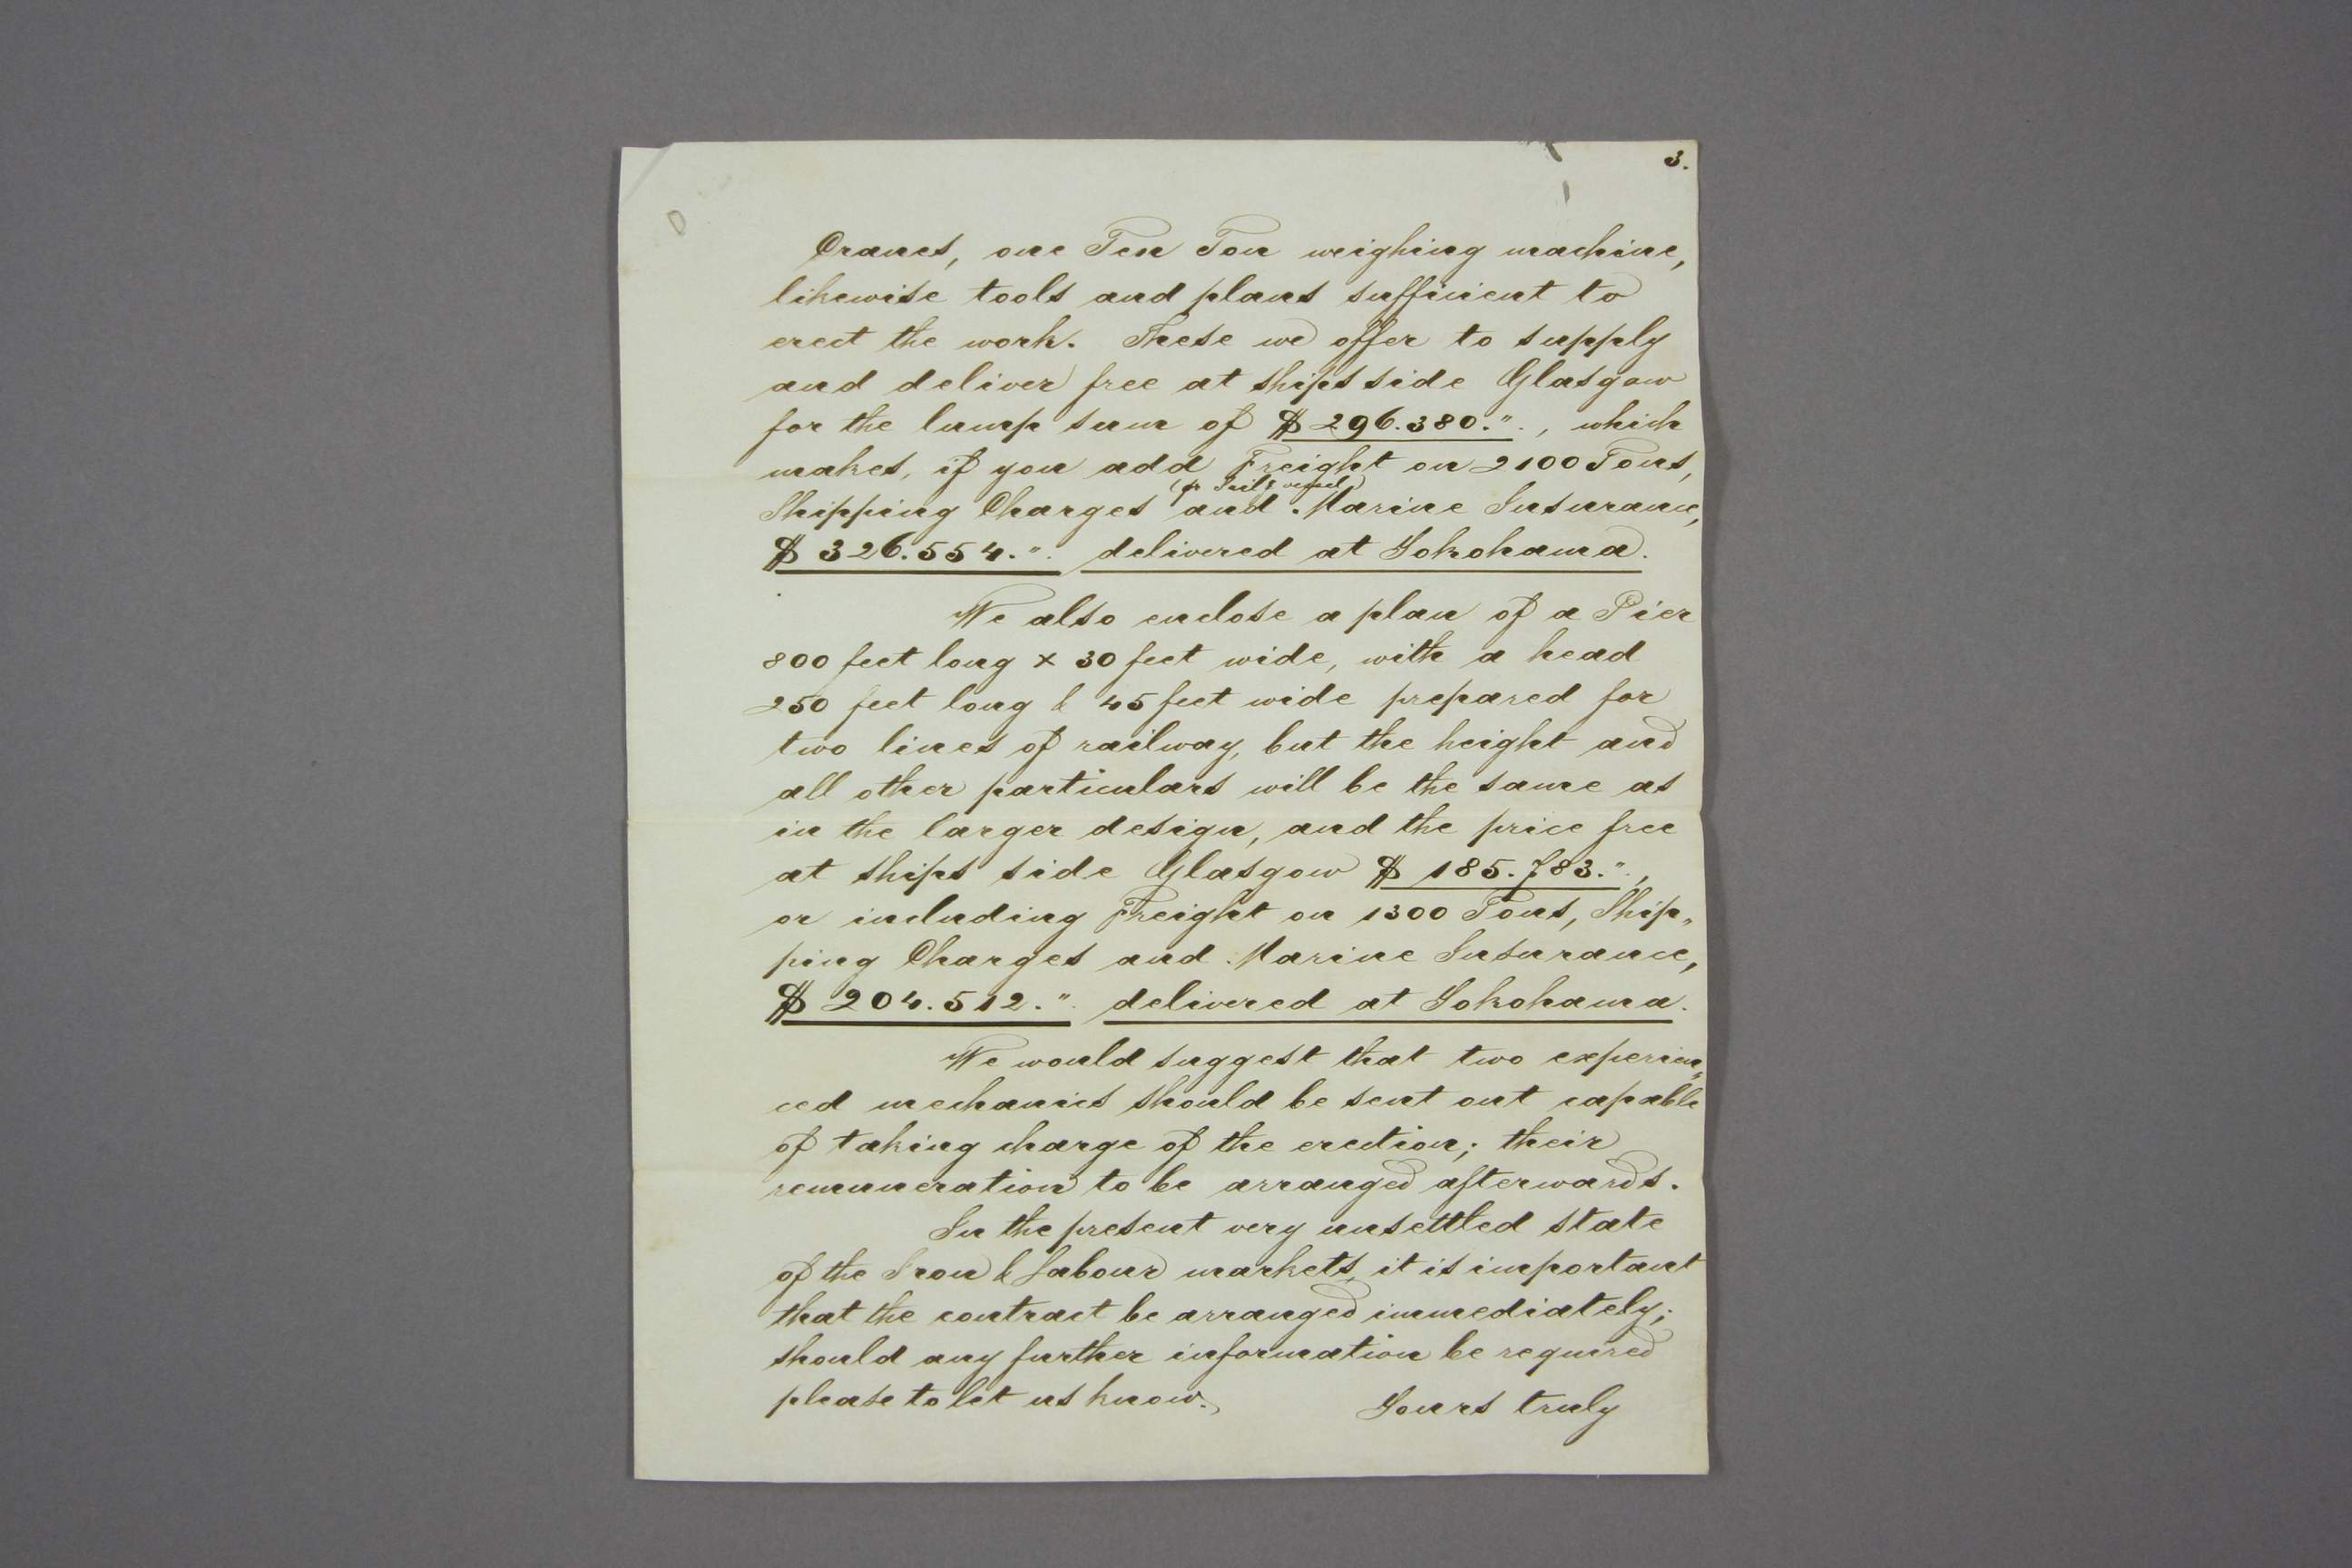 3.
Cranes, one Ten Ton weighing machine,
likewise tools and plans sufficient to
erect the work. These we offer to supply
and deliver free at ships side Glasgow
for the lump sum of $ 296.380.″., which
makes, if you add Freight on 2100 Tons,
(pr Sailg vessel)
Shipping Charges and Marine Insurance,
$ 326.554.″. delivered at Yokohama.
We also enclose a plan of a Pier
800 feet long x 30 feet wide, with a head
250 feet long & 45 feet wide prepared for
two lines of railway, but the height and
all other particulars will be the same as
in the larger design, and the price free
at ships side Glasgow $ 185.783.″.,
or including Freight on 1300 Tons, Ship„
ping Charges and Marine Insurance,
$ 204.512.″. delivered at Yokohama.
We would suggest that two experien„
ced mechanics should be sent out capable
of taking charge of the erection; their
remuneration to be arranged afterwards.
In the present very unsettled state
of the Iron & Labour markets, it is important
that the contract be arranged immediately;
should any further information be required
please to let us know.
Yours truly